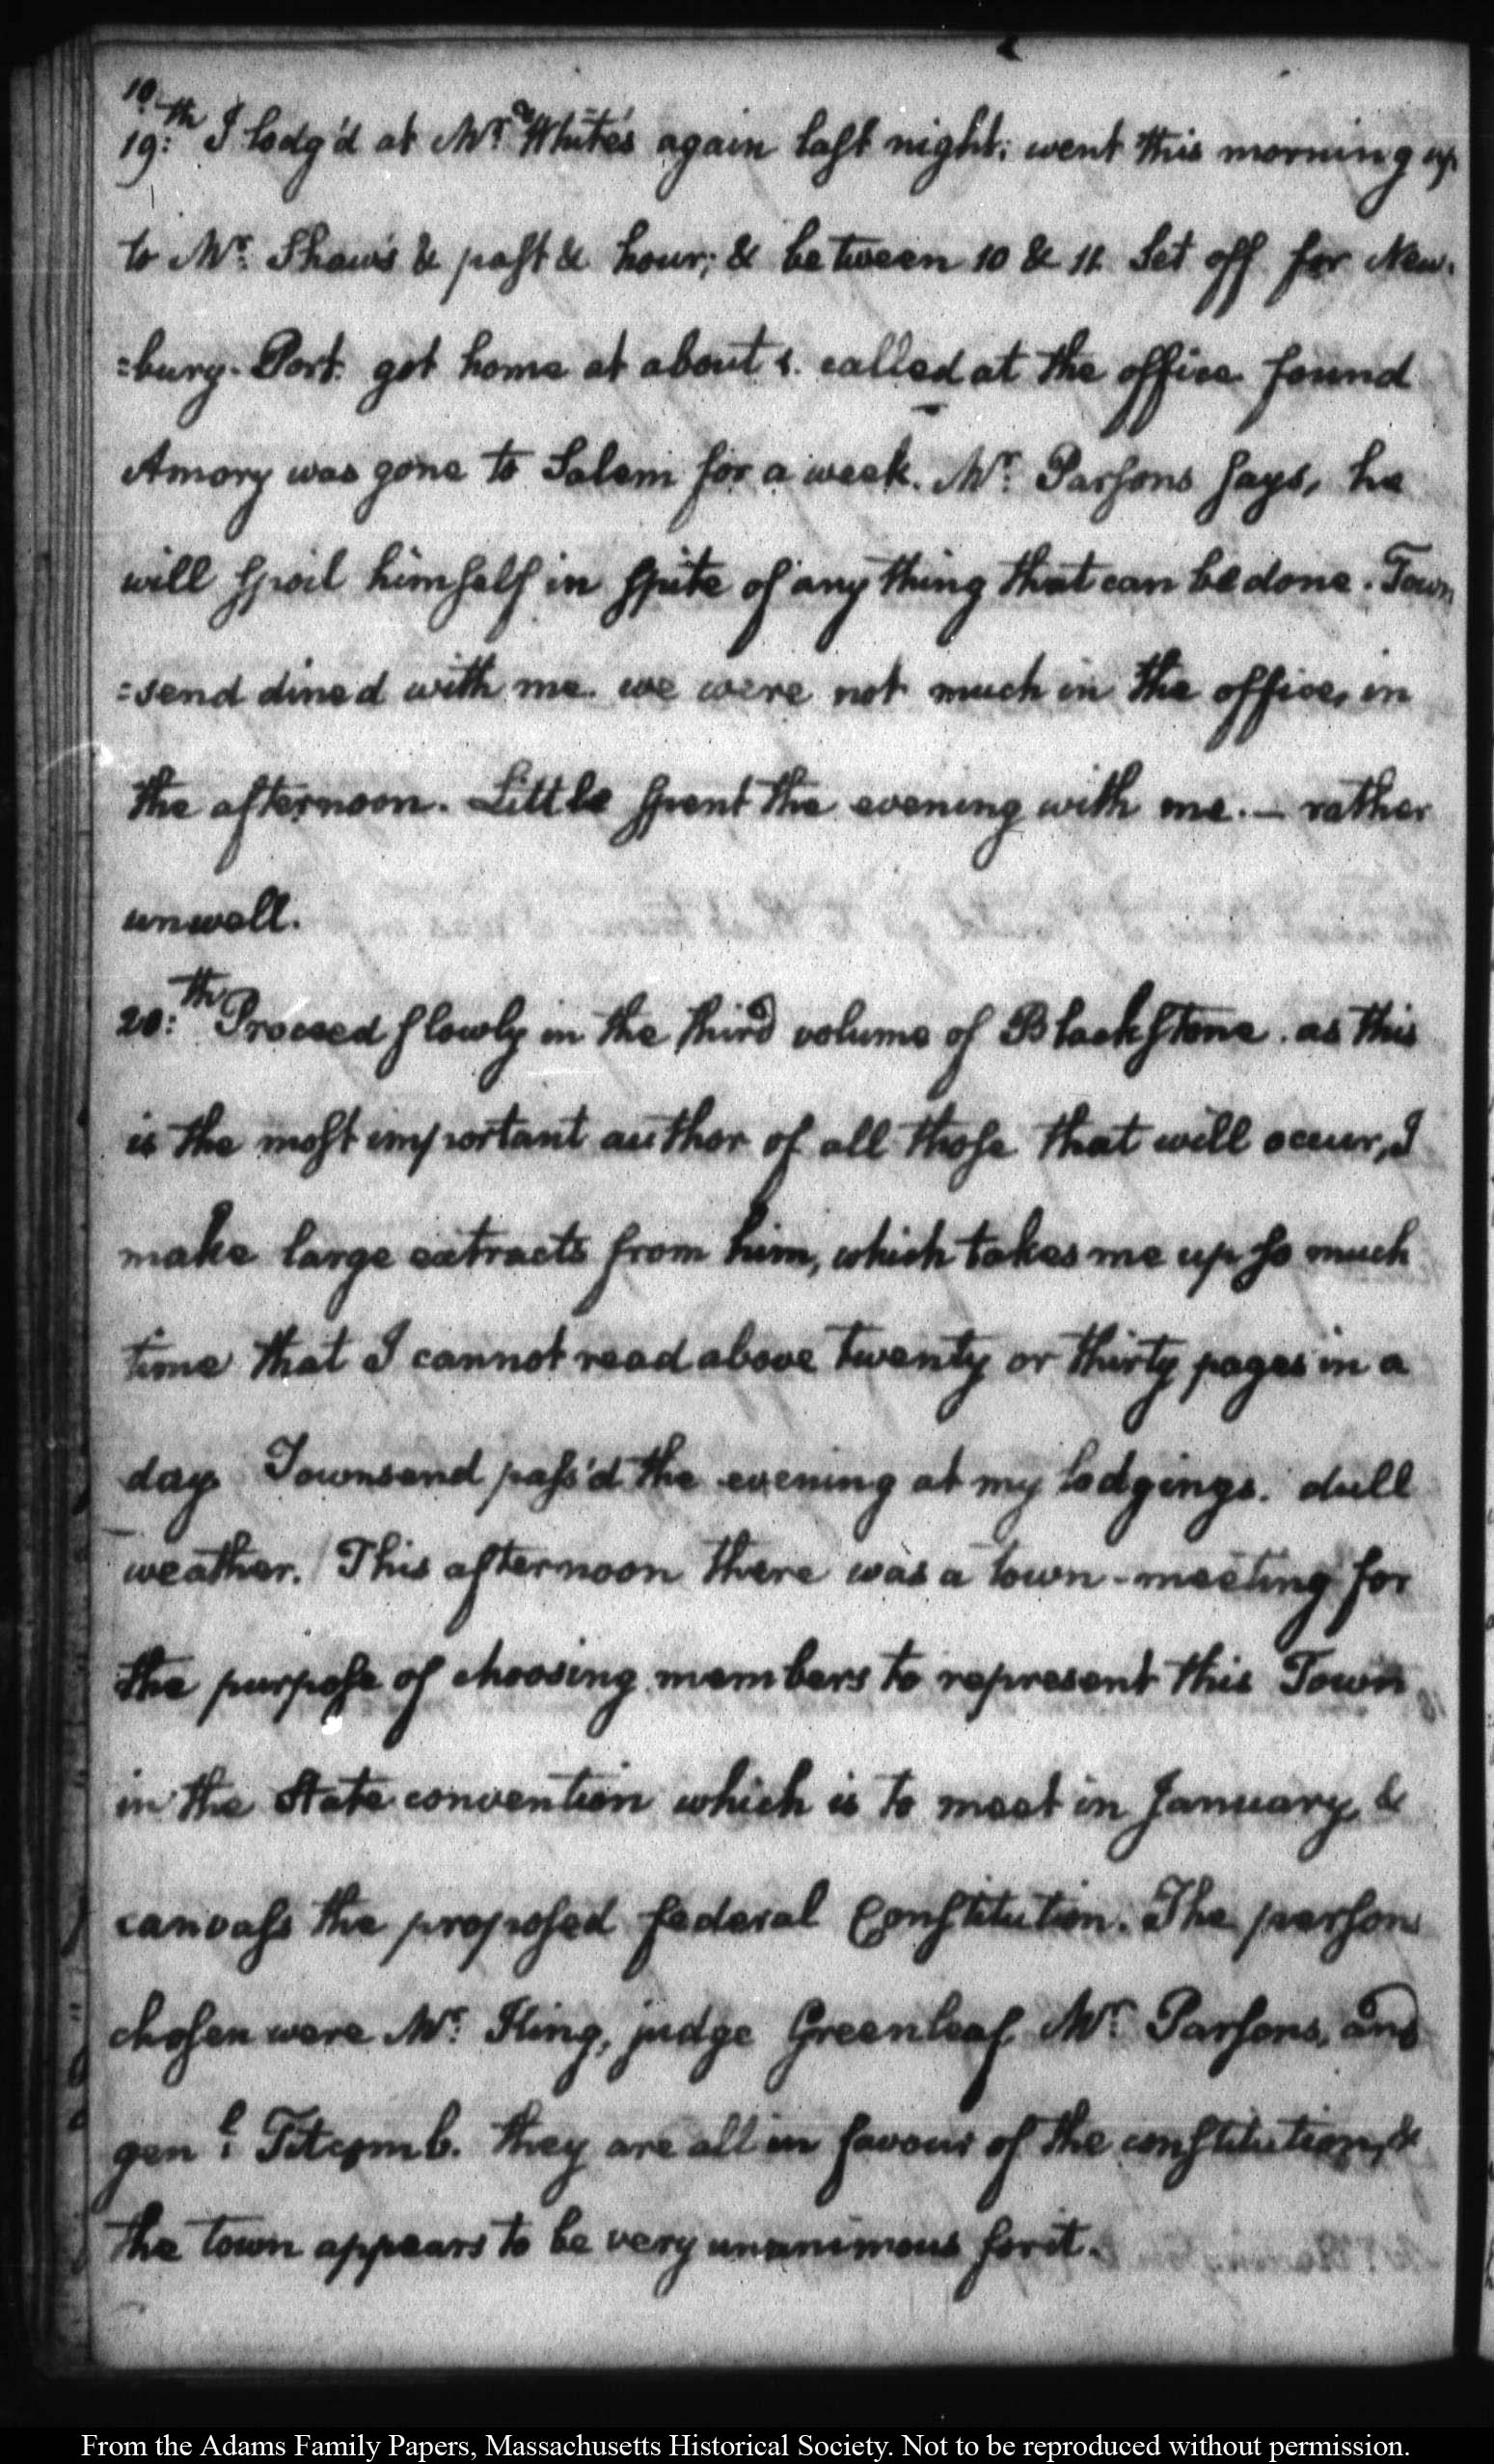 19:th I lodg'd at Mr. White's again last night; went this morning up
to Mr. Shaw's & past & hour; & between 10 & 11 set off for New-
=bury-Port. got home at about 1. called at the office found
Amory was gone to Salem for a week. Mr. Parsons says, he
will spoil himself in spite of any thing that can be done. Town
=send dined with me. we were not much in the office, in
the afternoon. Little spent the evening with me. — rather
unwell.
20:th Proceed slowly in the third volume of Blackstone. as this
is the most important author of all those that will occur, I
make large extracts from him, which takes me up so much
time that I cannot read above twenty or thirty pages in a
day. Townsend pass'd the evening at my lodgings. dull
weather. This afternoon there was a town-meeting for
the purpose of choosing members to represent this Town
in the State convention which is to meet in January, &
canvass the proposed federal Constitution. The persons
chosen were Mr. King, judge Greenleaf, Mr. Parsons, and
gen.l Titcomb. they are all in favour of the constitution, &
the town appears to be very unanimous for it.
From the Adams Family Papers, Massachusetts Historical Society. Not to be reproduced without permission.